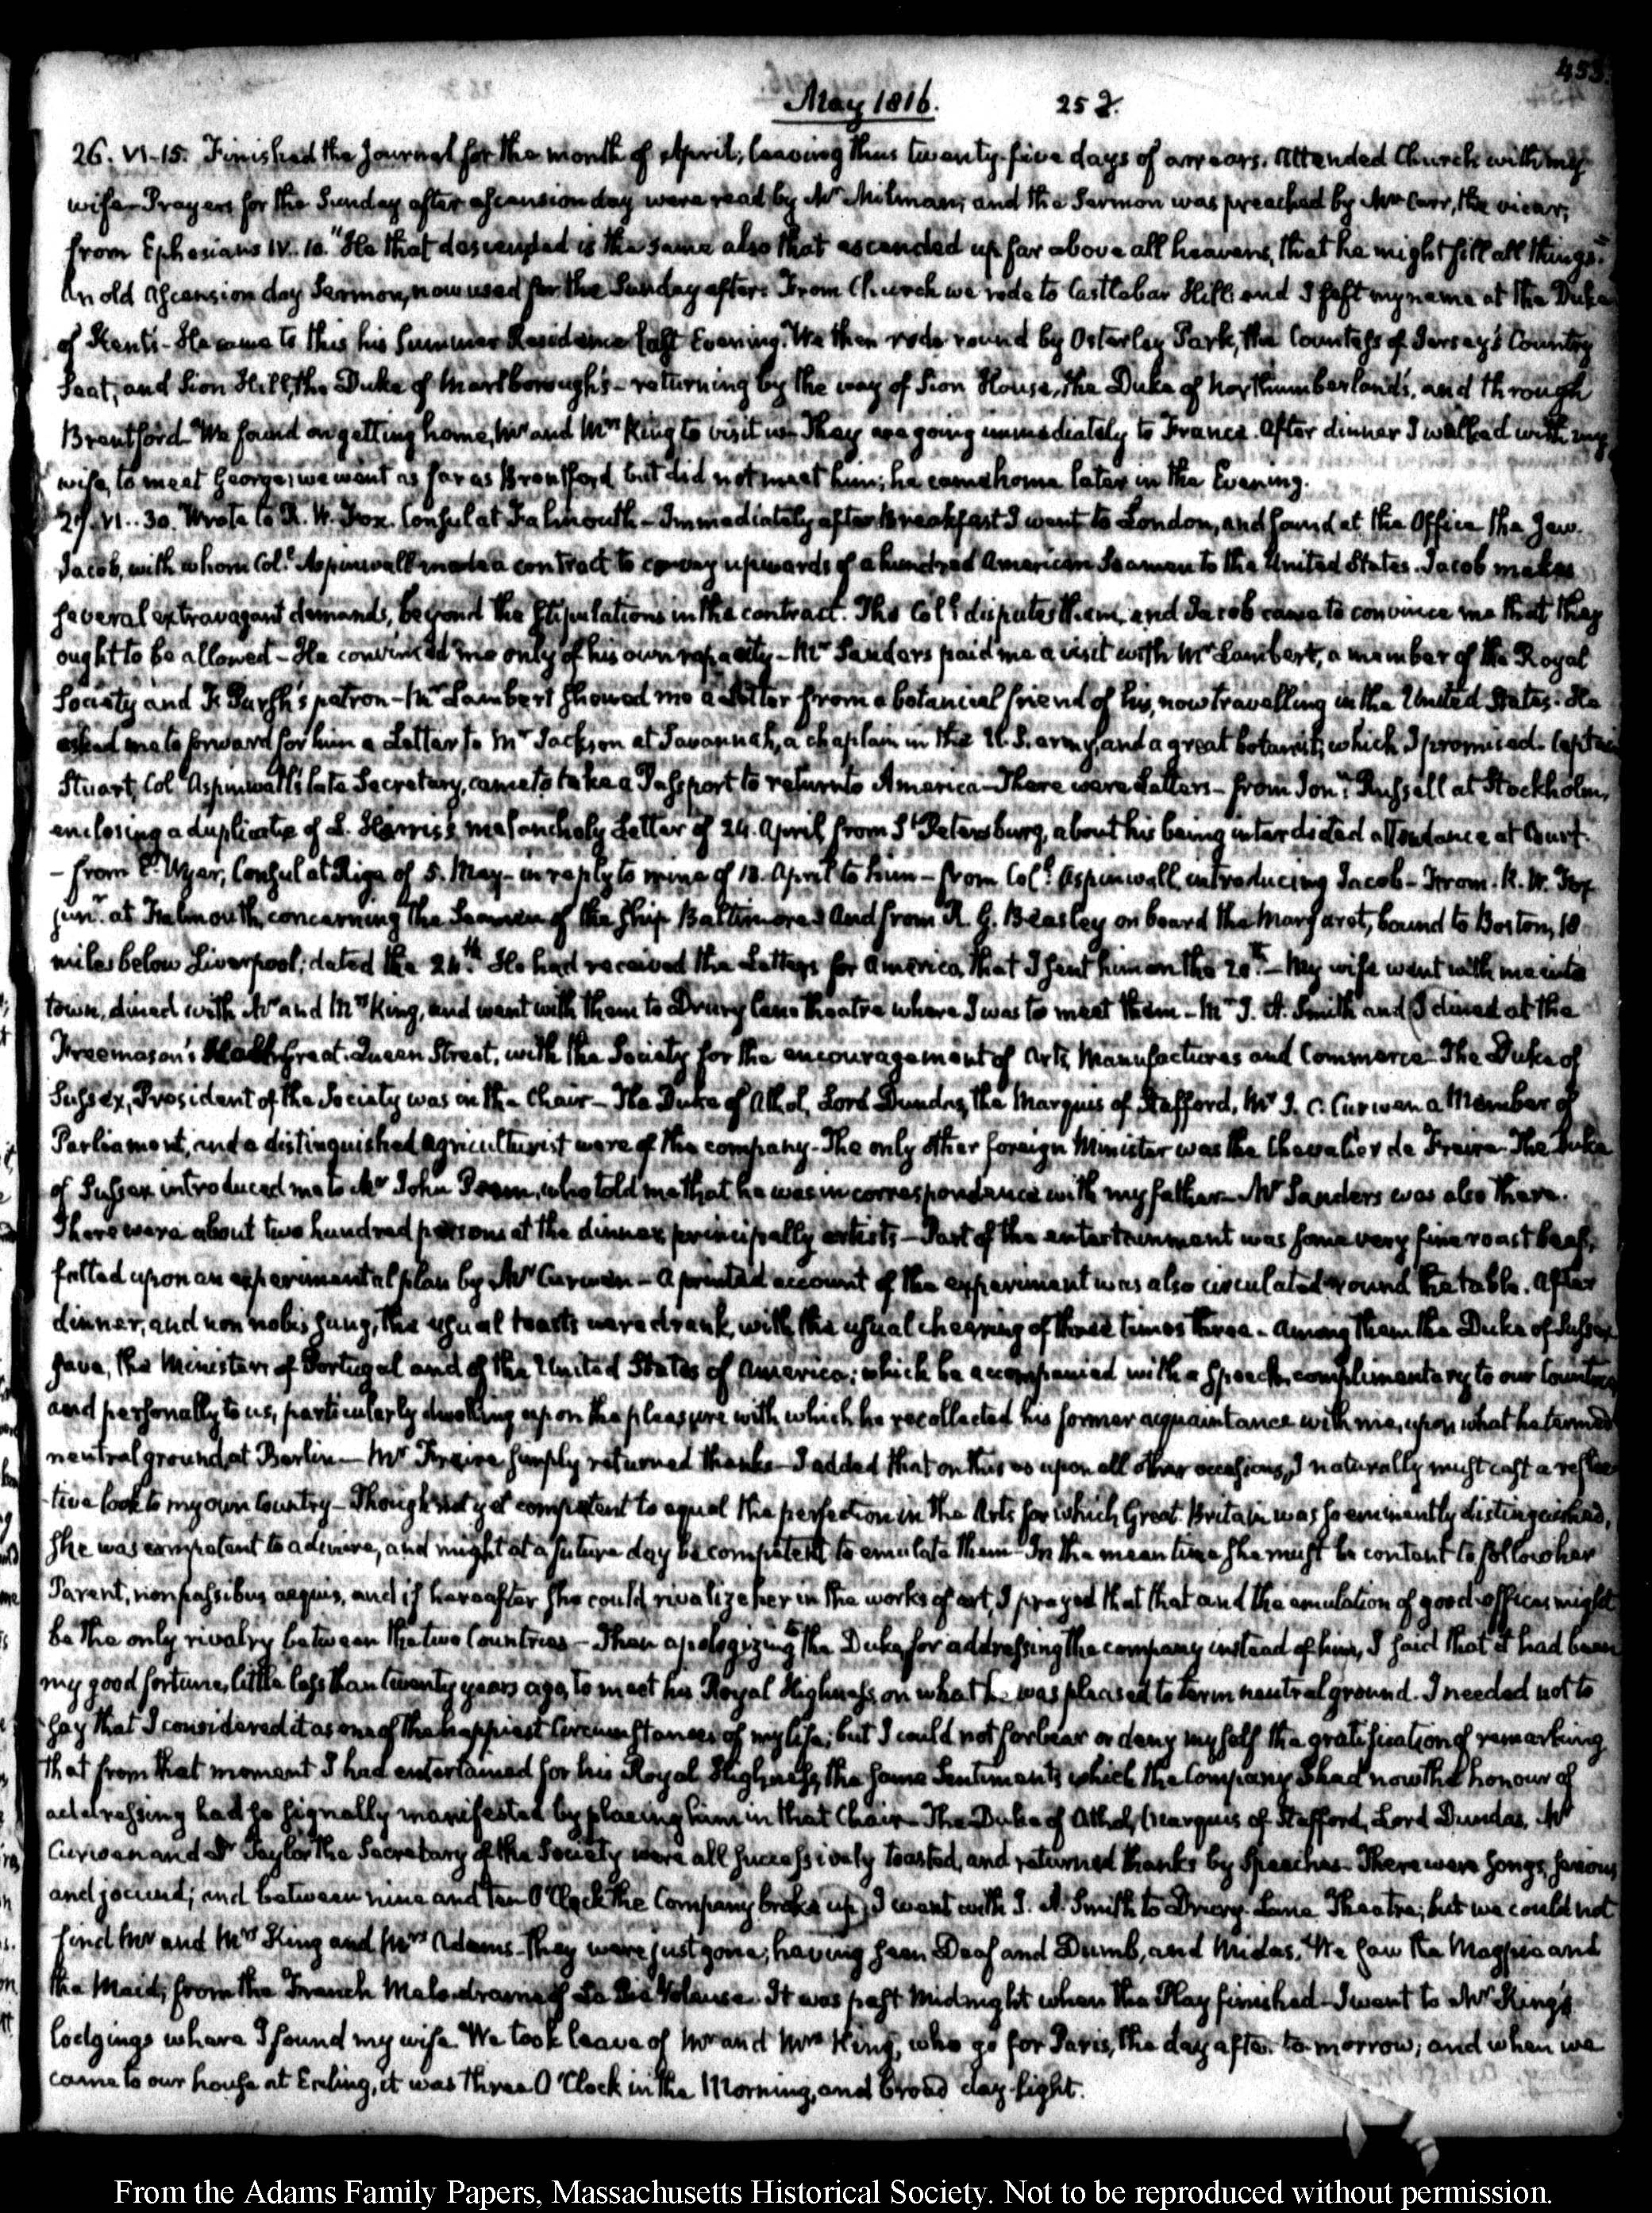 453.
May 1816. 252.
26. VI-15. Finished the Journal for the month of April; leaving thus twenty-five days of arrears. Attended Church with my
wife—Prayers for the Sunday after ascension day were read by Mr Milman, and the Sermon was preached by Mr Carr, the vicar;
from Ephesians IV. 10. "He that descended is the same also that ascended up far above all heavens, that he might fill all things."
An old Ascension day Sermon, now used for the Sunday after. From Church we rode to Castlebar Hill and I left my name at the Duke
of Kent's—He came to this his Summer Residence last Evening. We then rode round by Osterley Park, the Countess of Jersey's Country
Seat, and Sion Hill, the Duke of Marlborough's—returning by the way of Sion House, the Duke of Northumberland's, and through
Brentford—We found on getting home, Mr and Mrs King to visit us—They are going immediately to France. After dinner I walked with my
wife, to meet George; we went as far as Brentford but did not meet him; he came home later in the Evening.
27. VI..30. Wrote to R. W. Fox. Consul at Falmouth—Immediately after breakfast I went to London, and found at the Office the Jew.
Jacob, with whom Col. Aspinwall made a contract to convey upwards of a hundred American Seamen to the United States. Jacob makes
several extravagant demands, beyond the stipulations in the contract. The Col. disputes them, and Jacob came to convince me that they
ought to be allowed—He convinced me only of his own rapacity—Mr Sanders paid me a visit with Mr Lambert, a member of the Royal
Society and F. Pursh's patron—Mr Lambert showed me a Letter from a botanical friend of his, now travelling in the United States. He
asked me to forward for him a Letter to Mr Jackson at Savannah, a chaplain in the U.S. army, and a great botanist; which I promised. Captain
Stuart, Col. Aspinwall's late Secretary, came to take a Passport to return to America—There were Letters—from Jon.n Russell at Stockholm,
enclosing a duplicate of L. Harris's melancholy Letter of 24. April from St Petersburg, about his being interdicted attendance at Court.
—from E. Wyer, Consul at Riga of 5. May—in reply to mine of 18. April to him—from Col. Aspinwall, introducing Jacob—From. R. W. Fox
junr. at Falmouth, concerning the Seamen of the ship Baltimore—And from R. G. Beasley on board the Margaret, bound to Boston, 18
miles below Liverpool; dated the 24th. He had received the Letters for America, that I sent him on the 20th.—My wife went with me into
town, dined with Mr and Mrs King, and went with them to Drury Lane theatre where I was to meet them—Mr J. A. Smith and I dined at the
Freemason's Hall, Great Queen Street, with the Society for the encouragement of Arts, Manufactures and Commerce—The Duke of
Sussex, President of the Society was in the Chair—The Duke of Athol, Lord Dundas, the Marquis of Stafford, Mr J. C. Curwen a Member of
Parliament, and a distinguished agriculturist were of the company—The only other foreign Minister was the Chevalier de Freire—The Duke
of Sussex introduced me to Mr John, who told me that he was in correspondence with my father—Mr Sanders was also there.
There were about two hundred persons at the dinner, principally artists—Part of the entertainment was some very fine roast beef,
fatted upon an experimental plan by Mr Curwen—A printed account of the experiment was also circulated round the table. After
dinner, and non nobis sung, the usual toasts were drank, with the usual cheering of three times three. Among them the Duke of Sussex
gave, the Ministers of Portugal and of the United States of America; which he accompanied with a speech, complimentary to our Countries
and personally to us, particularly dwelling upon the pleasure with which he recollected his former acquaintance with me, upon what he termed
neutral ground, at Berlin—Mr Freire simply returned thanks—I added that on this as upon all other occasions, I naturally must cast a reflec
-tive look to my own Country—Though not yet competent to equal the perfection in the Arts for which Great Britain was so eminently distinguished,
She was competent to admire, and might at a future day be competent to emulate them—In the mean time she must be content to follow her
Parent, non passibus aequis, and if hereafter she could rivalize her in the works of art, I prayed that that and the emulation of good offices might
be the only rivalry between the two Countries—Then apologizing to the Duke for addressing the company instead of him, I said that it had been
my good fortune, little less than twenty years ago, to meet his Royal Highness, on what he was pleased to term neutral ground. I needed not to
say that I considered it as one of the happiest Circumstances of my life; but I could not forbear or deny myself the gratification of remarking
that from that moment I had entertained for his Royal Highness, the same Sentiments which the Company I had now the honour of
addressing had so signally manifested by placing him in that Chair—The Duke of Athol, Marquis of Stafford, Lord Dundas, Mr
Curwen and Dr Taylor the Secretary of the Society were all successively toasted, and returned thanks by Speeches—There were songs, serious
and jocund; and between nine and ten O'Clock the Company broke up; I went with J. A. Smith to Drury-Lane Theatre; but we could not
find Mr and Mrs King and Mrs Adams—They were just gone; having seen Deaf and Dumb, and Midas. We saw the Magpie and
the Maid; from the French Melo-drama of La Pie Voleuse. It was past Midnight when the Play finished—I went to Mr King's
lodgings where I found my wife. We took leave of Mr and Mrs King, who go for Paris, the day after to-morrow; and when we
came to our house at Ealing, it was three O'Clock in the Morning, and broad day-light.
From the Adams Family Papers, Massachusetts Historical Society. Not to be reproduced without permission.